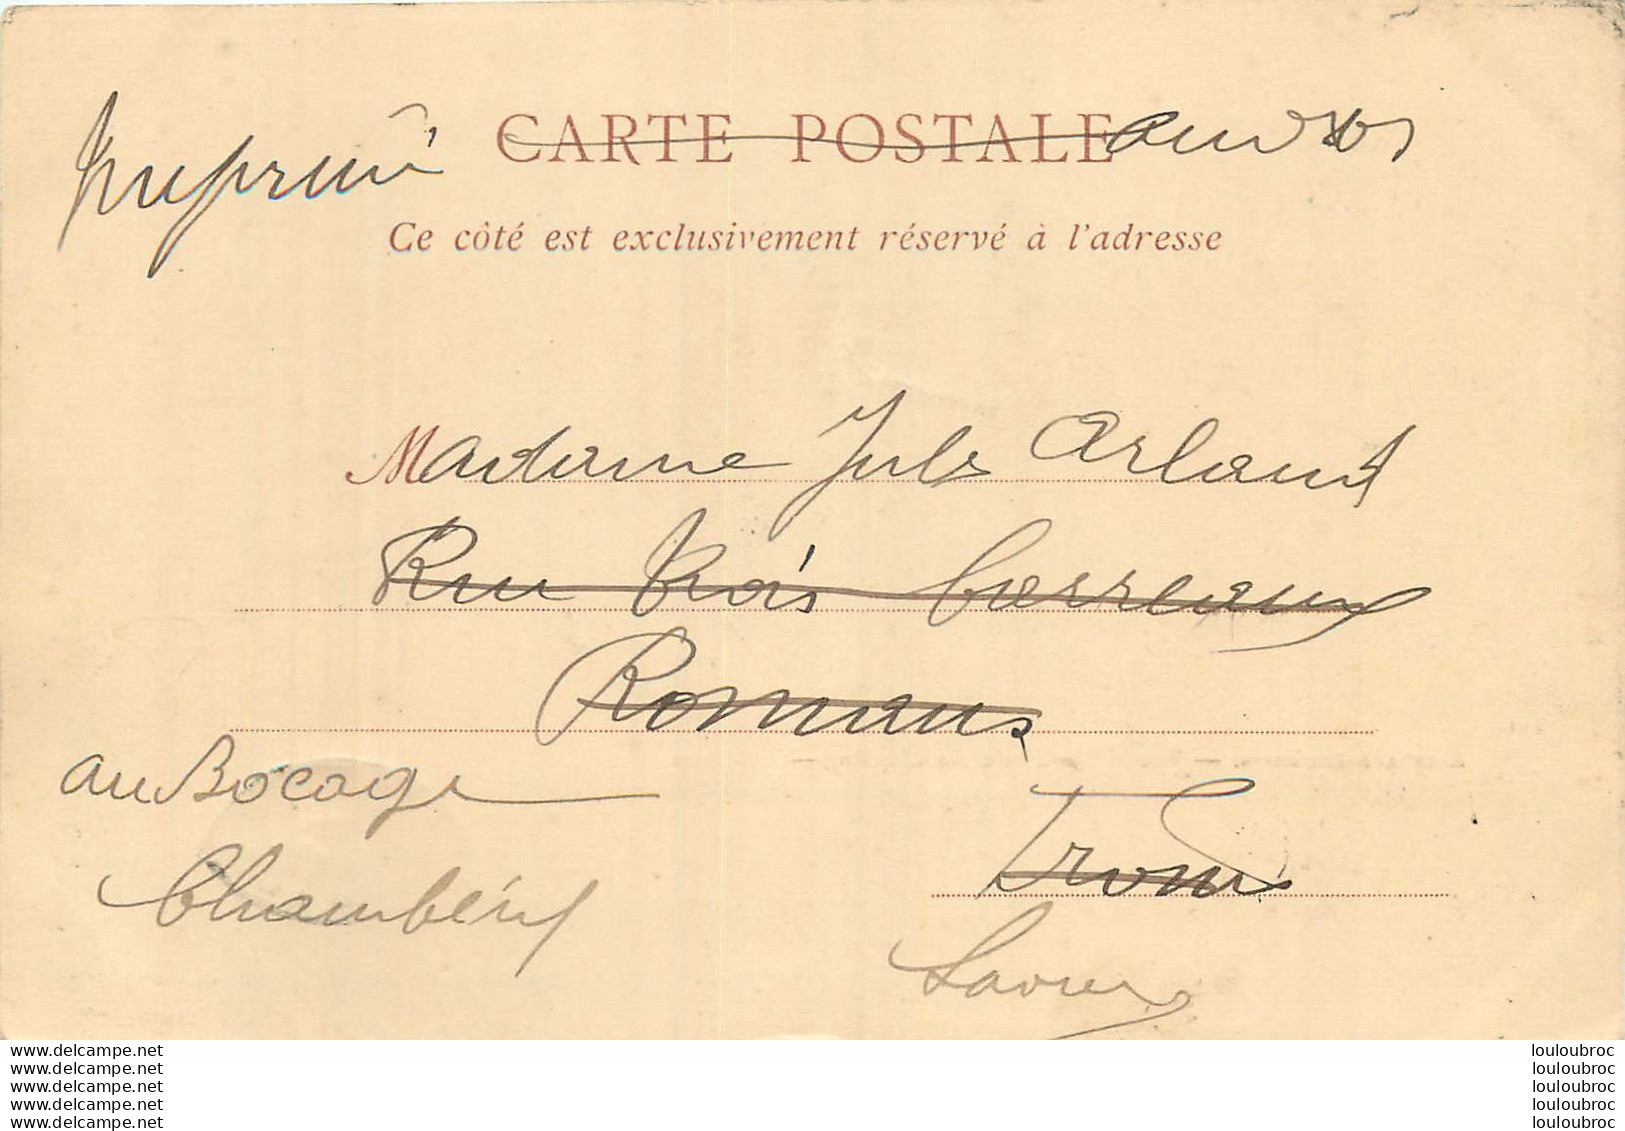 Imprimé CARTE POSTALE
Ce côté est exclusivement réservé à l'adresse
Madame Jules Arlaud
Rue Trois Carreaux
Romans
au Bocage
Drôme
Chambéry
Savoie
www.delcampe.net louloubroc
www.delcampe.net louloubroc
www.delcampe.net louloubroc
www.delcampe.net louloubroc
www.delcampe.net louloubroc